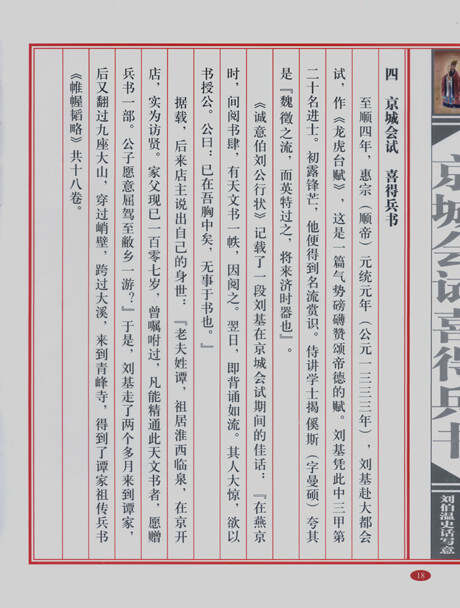 四　京城会试　喜得兵书
至顺四年，惠宗（顺帝）元统元年（公元一三三三年），刘基赴大都会
试，作《龙虎台赋》，这是一篇气势磅礴赞颂帝德的赋。刘基凭此中三甲第
二十名进士。初露锋芒，他便得到名流赏识。侍讲学士揭傒斯（字曼硕）夸其
是『魏徵之流，而英特过之，将来济时器也』。
《诚意伯刘公行状》记载了一段刘基在京城会试期间的佳话：『在燕京
时，间阅书肆，有天文书一帙，因阅之。翌日，即背诵如流。其人大惊，欲以
书授公。公曰：已在吾胸中矣，无事于书也。』
据载，后来店主说出自己的身世：『老夫姓谭，祖居淮西临泉，在京开
店，实为访贤。家父现已一百零七岁，曾嘱咐过，凡能精通此天文书者，愿赠
兵书一部。公子愿意屈驾至敝乡一游？』于是，刘基走了两个多月来到谭家，
后又翻过九座大山，穿过峭壁，跨过大溪，来到青峰寺，得到了谭家祖传兵书
《帷幄韬略》共十八卷。
京城会试喜得兵书
刘伯温史话写意
18